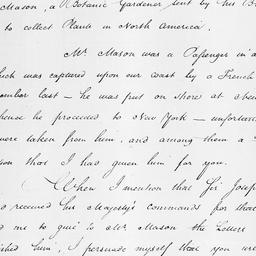 Mason, a Botanic Gardener sent by his
to collect Plants in North America.
Mr Mason was a Passenger in a
which was captured upon our Coast by a French
ember last — he was put on shore at
hence he proceeded to New York — unfortun
were taken from him, and among them a
on that I had given him for you.
When I mention that Sir Josep
s received his Majesty's Commands for that
d me to give to Mr Mason the Letters
ished him, I persuade myself that you